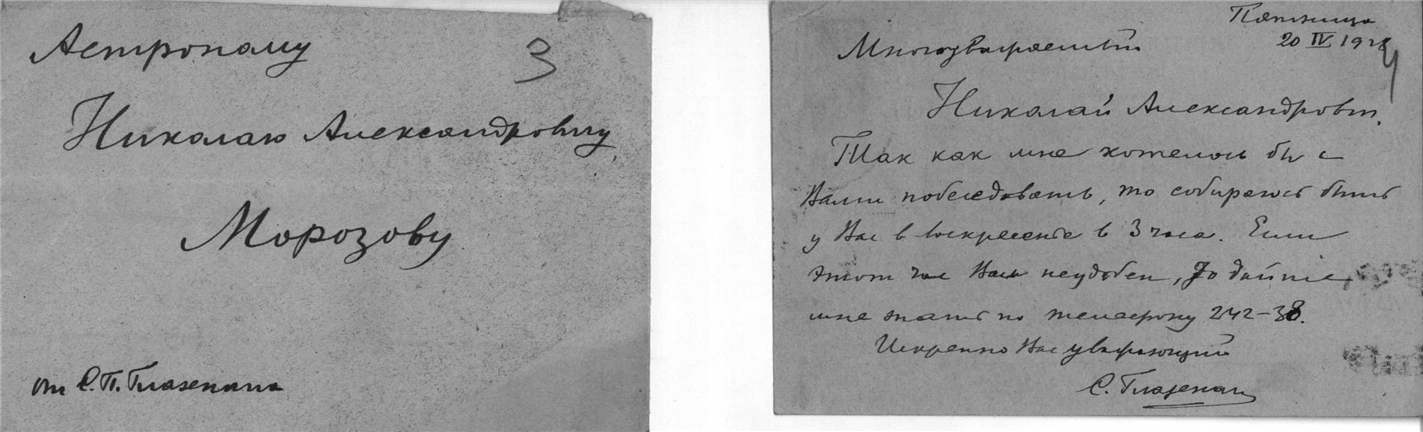 Астроному
3
Николаю Александровичу
Морозову
от С. П. Глазенапа
Пятница
20 IV 1928
4
Многоуважаемый
Николай Александрович.
Так как мне хотелось бы с
Вами побеседовать, то собираюсь быть
у Вас в воскресенье в 3 часа. Если
этот час Вам неудобен, то дайте
мне знать по телефону 242-38.
Искренно Вас уважающий
С. Глазенап